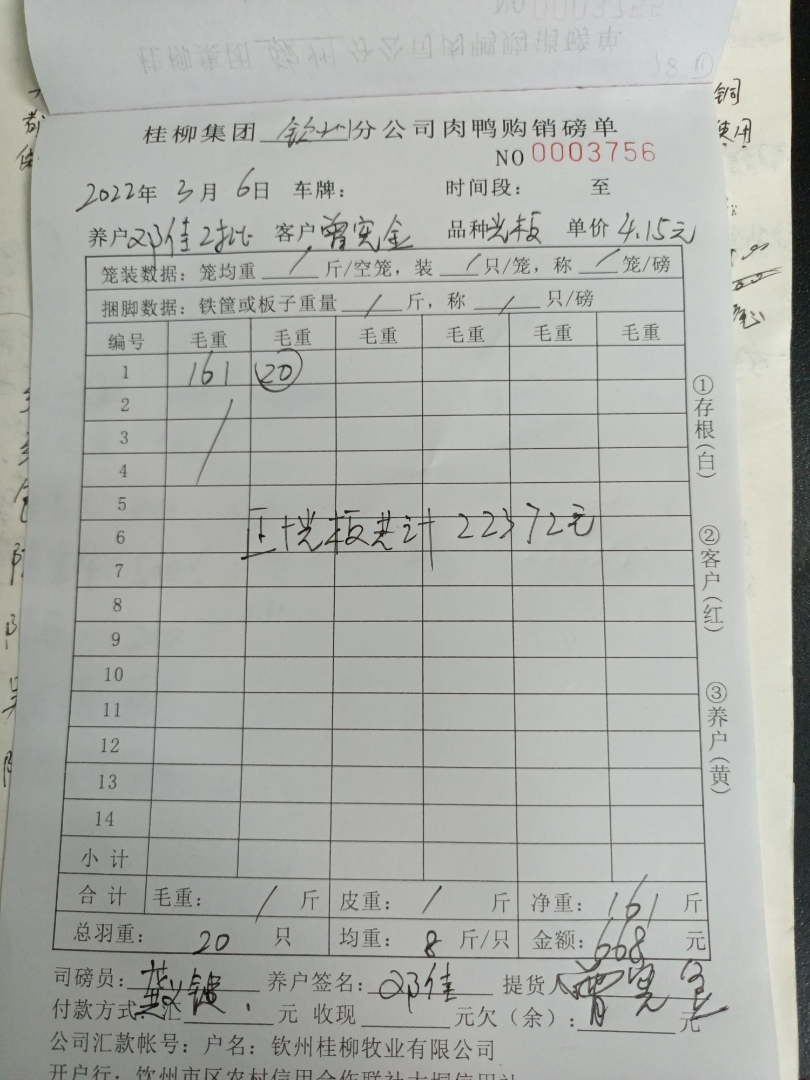 NO 0003756
桂柳集团 钦州 分公司肉鸭购销磅单
桂柳集团 钦州 分公司肉鸭购销磅单
NO 0003756
2022年 3月 6日 车牌: 时间段: 至
养户 邓佳2批 客户 曾宪金 品种 光板 单价 4.15元
笼装数据:笼均重 / 斤/空笼,装 / 只/笼,称 / 笼/磅
捆脚数据:铁筐或板子重量 / 斤,称 / 只/磅
编号 毛重 毛重 毛重 毛重 毛重 毛重
1 161 20
2
3
4
5
6 正+光板共计 22372元
7
8
9
10
11
12
13
14
小计
合计 毛重: / 斤 皮重: / 斤 净重: 161 斤
总羽重: 20 只 均重: 8 斤/只 金额: 668 元
司磅员: 养户签名: 邓佳 提货人 曾宪金
付款方式: 汇 元 收现 元欠(余): 元
公司汇款帐号:户名:钦州桂柳牧业有限公司
开户行:钦州市区农村信用合作联社大垌信用社
①存根(白)
②客户(红)
③养户(黄)